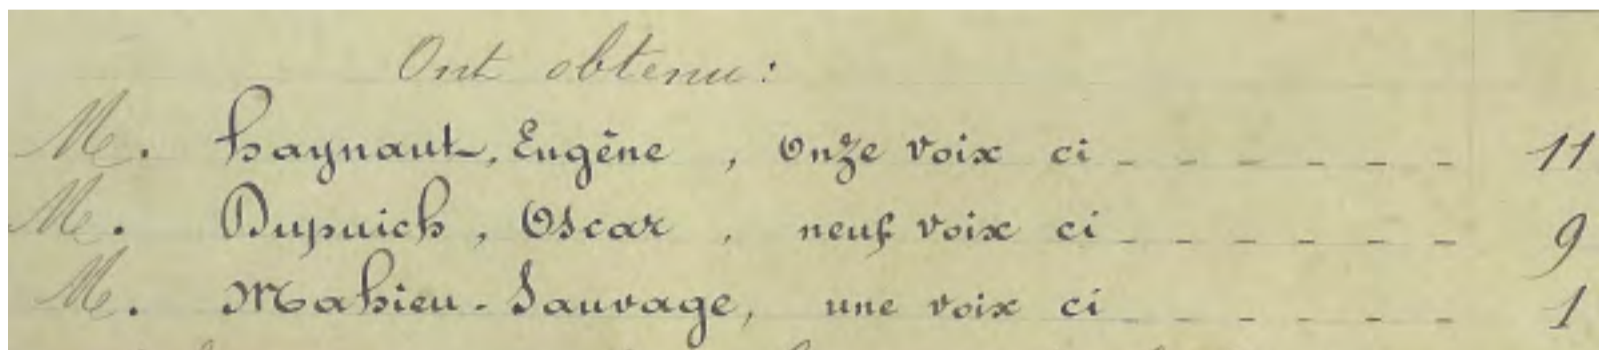 Ont obtenu:
M. Haynaut, Eugène, Onze voix ci - - - - - - - 11
M. Dupuich, Oscar, neuf voix ci - - - - - - - 9
M. Mahieu-Sauvage, une voix ci - - - - - - - 1